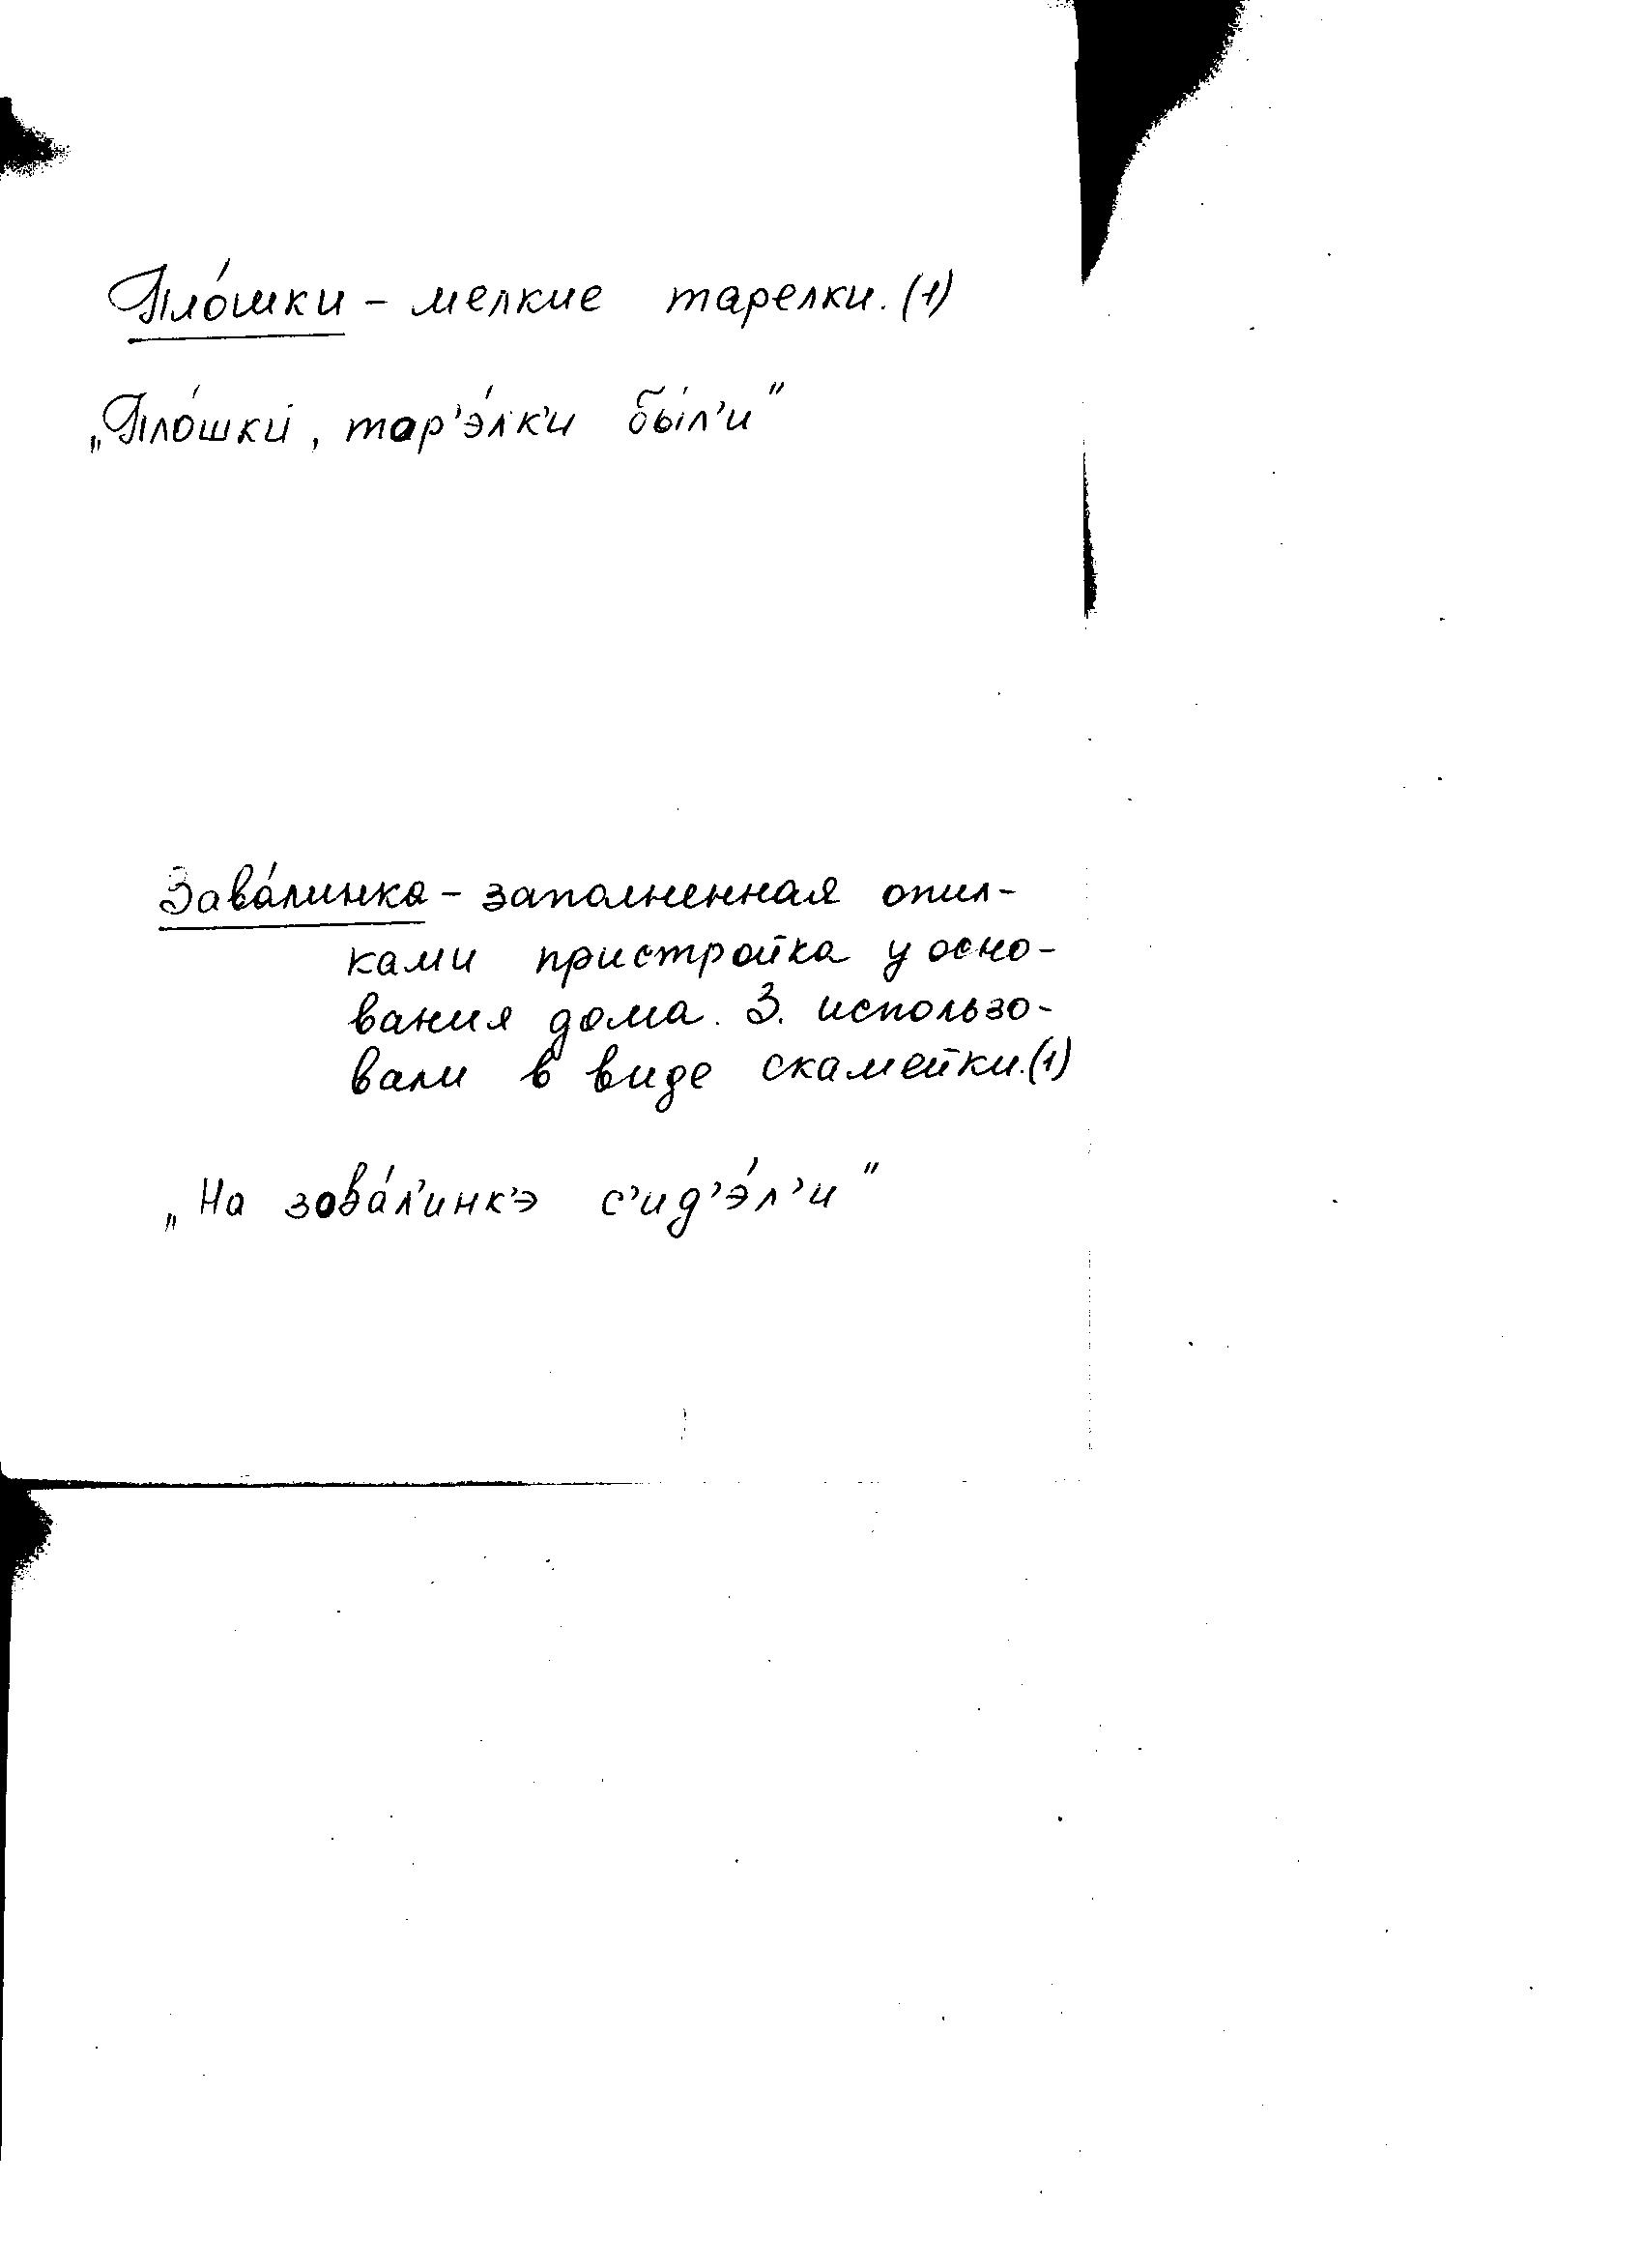 Пло́шки – мелкие тарелки. (1)
„Пло́шки, тар’э́лк’и бы́л’и”
Зава́линка – заполненная опил-
ками пристройка у осно-
вания дома. З. использо-
вали в виде скамейки. (1)
„На зова́л’инк’э с’ид’э́л’и”